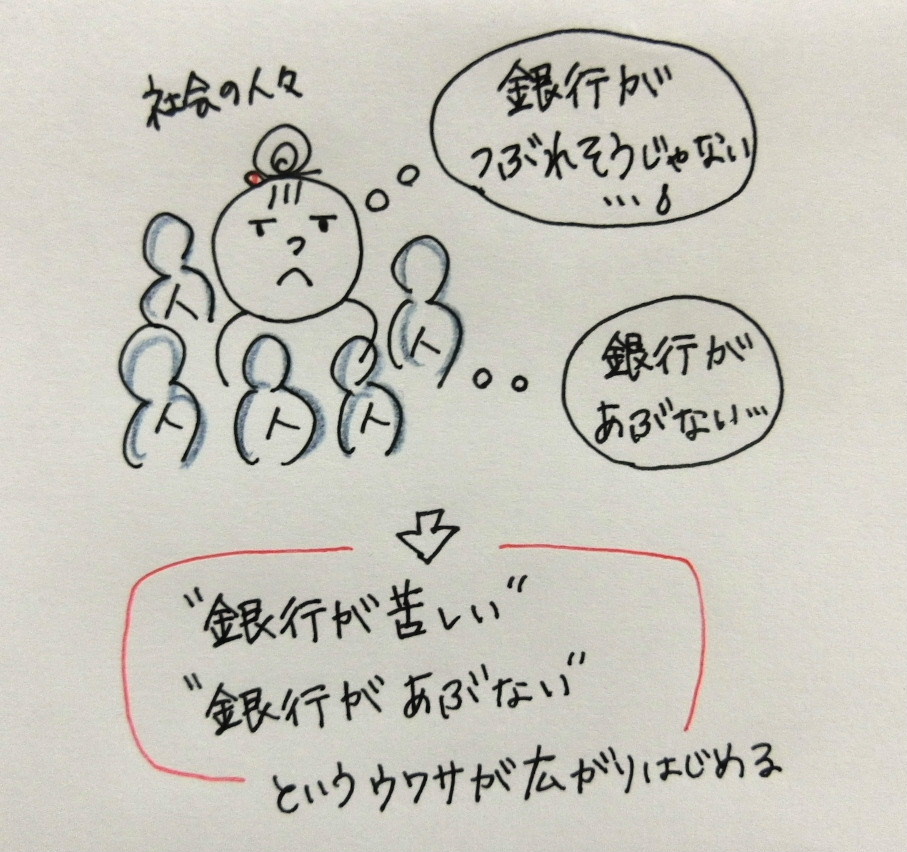 社会の人々
銀行が
つぶれそうじゃない
…
銀行が
あぶない…
人
人
人
人
人
"銀行が苦しい"
"銀行があぶない"
というウワサが広がりはじめる